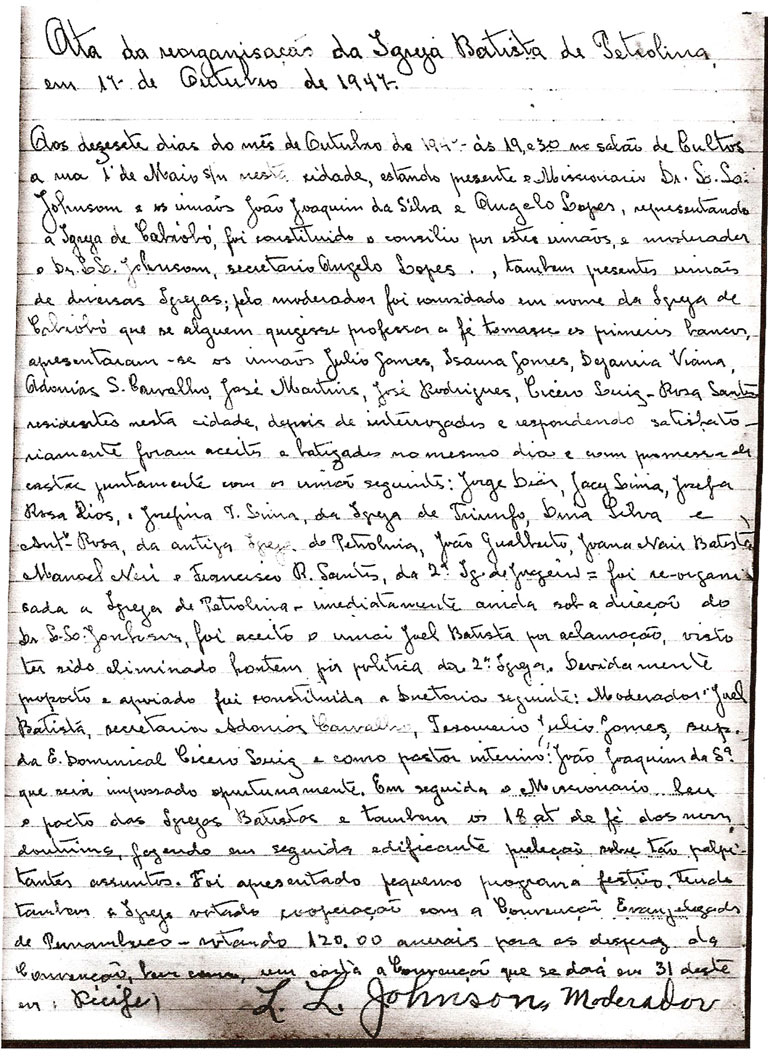 Ata da reorganisação da Igreja Batista de Petrolina,
em 17 de Outubro de 1947.
Aos dezesete dias do mês de Outubro de 194 ás 19,e30 no salão de Cultos
a rua 1º de Maio s/n nesta cidade, estando presente o Missionario Dr. L. L.
Johnsom e os irmãos João Joaquim da Silva e Angelo Lopes, representando
a Igreja de Cabrobó, foi constituido o consilio por estes irmãos, e moderador
o Dr. L. L. Johnsom, secretario Angelo Lopes . , tambem presentes irmãos
de diversas Igrejas; pelo moderador foi convidado em nome da Igreja de
Cabrobó que se alguem quizesse professar a fé tomasse os primeiros bancos,
apresentaram-se os irmãos Julio Gomes, Isaura Gomes, Dejanira Viana,
Adonias S. Carvalho, José Martins, José Rodrigues, Cicero Luiz - Rosa Santos
residentes nesta cidade, depois de interrogados e respondendo satisfató-
riamente foram aceitos e batizados no mesmo dia e com promessa de
juntamente com os irmãos seguints: Jorge Dias, Jacy Lima, Josefa
Rosa Rios, e Josefina T. Lima, da Igreja de Triunfo, Silva e
Antº Rosa, da antiga Igreja de Petrolina, João Gualberto, Joana Nair Batista
Manoel Neri e Francisco R. Santos, da 2ª Ig. de Juazeiro = foi re-organi
sada a Igreja de Petrolina - imediatamente ainda sob a direção do
Dr L. L. Jonhsom, foi aceito o irmão Joel Batista por aclamação, visto
ter sido eliminado hontem por politica da 2ª Igreja. Devidamente
proposto e apoiado foi constituida a Diretoria seguinte: Moderador Joel
Batista, secretario Adonias Carvalho, Tesoureiro Julio Gomes, sup.
da E. Dominical Cicero Luiz e como pastor interino: João Joaquim da Sª
que será impossado oportunamente. Em seguida o Missionario leu
o pacto das Igrejas Batistas e tambem os 18 at de fé das
doutrina, fazendo em seguida edificante preleção sobre tão palpi-
tantes assuntos. Foi apresentado pequeno programa festivo. Tendo
tambem a Igreja votado cooperação com a Convenção Evangelizado
de Pernambuco - votando 120.00 anuais para as despezas da
Convenção, bem como, um carta a Convenção que se dará em 31 deste
em: Recife)
L. L. Johnson, Moderador